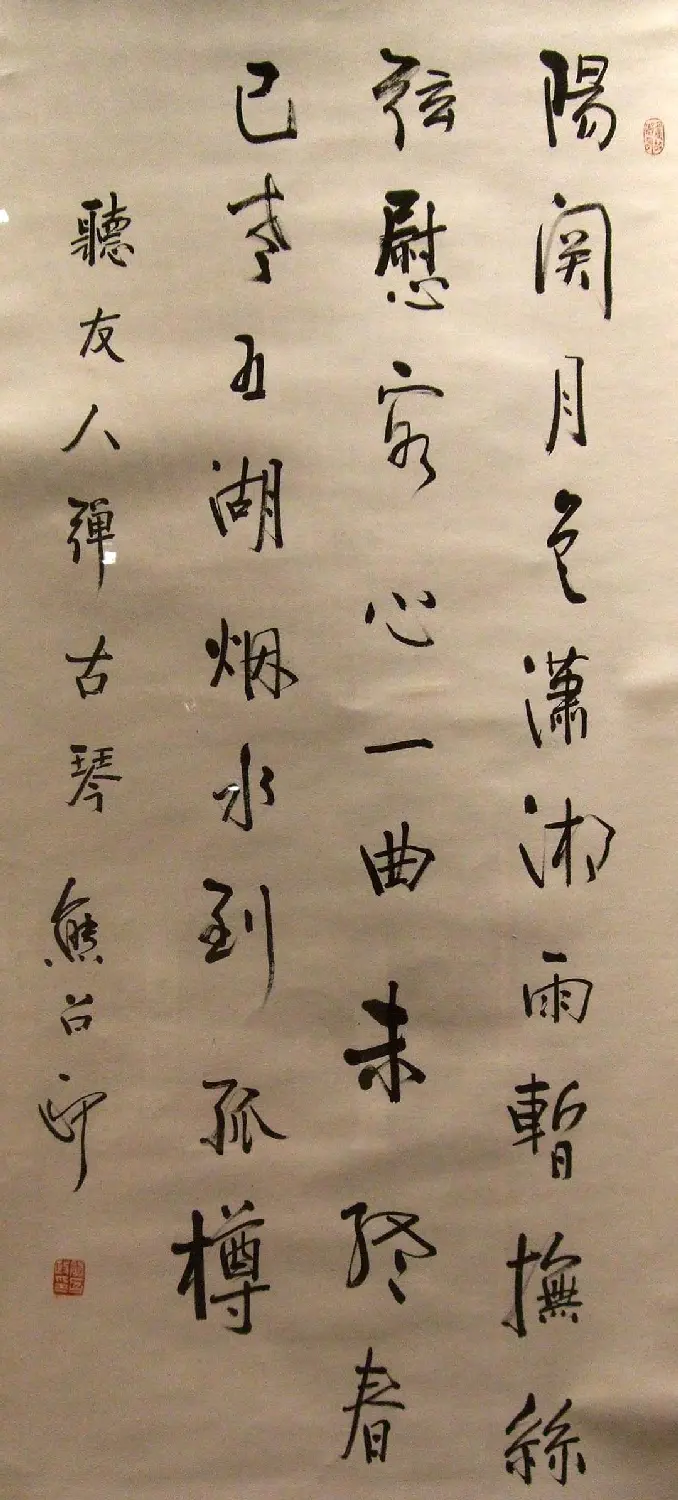 陽関月色瀟湘雨暫撫絲
弦慰客心一曲未終春
已老五湖烟水到孤樽
聽友人彈古琴 熊召政